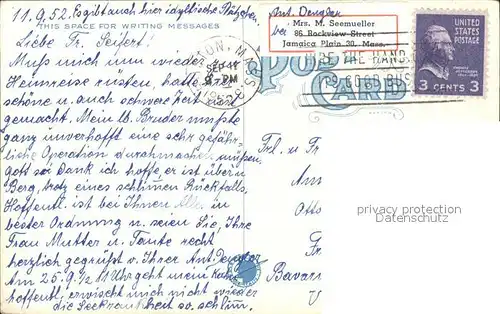 11.9.52. Es gibt auch hier idyllische Plätzchen.
THIS SPACE FOR WRITING MESSAGES
Liebe Fr. Seifert!
Muß mich nun wieder
Heimreise rüsten, hatte
schöne u. auch zuviel Zeit
gemacht. Mein lb. Bruder mußte
ganz unverhofft eine sehr gefähr-
liche Operation durchmachen müssen,
gott sei Dank ich hoffe, er ist über'n
Berg, trotz eines schlimmen Rückfalls.
Hoffentl. ist bei Ihnen Alle in
bester Ordnung u. seien Sie, Ihre
Frau Mutter u. Tante recht
herzlich gegrüßt v. Ihrer Ant. Dengler
Am 25.9. 1/2 11 Uhr geht mein
hoffentl. erwischt mich nicht wieder
die Seekrankheit so schlim.
Ant. Dengler
bei
Mrs. M. Seemueller
86 Rockview Street
Jamaica Plain 30, Mass.
SEP 11
PM
1952
MASS
THE HAND
GOOD BUS
POST
CARD
3 CENTS 3
Frl. u. Fr
Am
Otto
Fr
Bavar
V
picture protected
by copyright